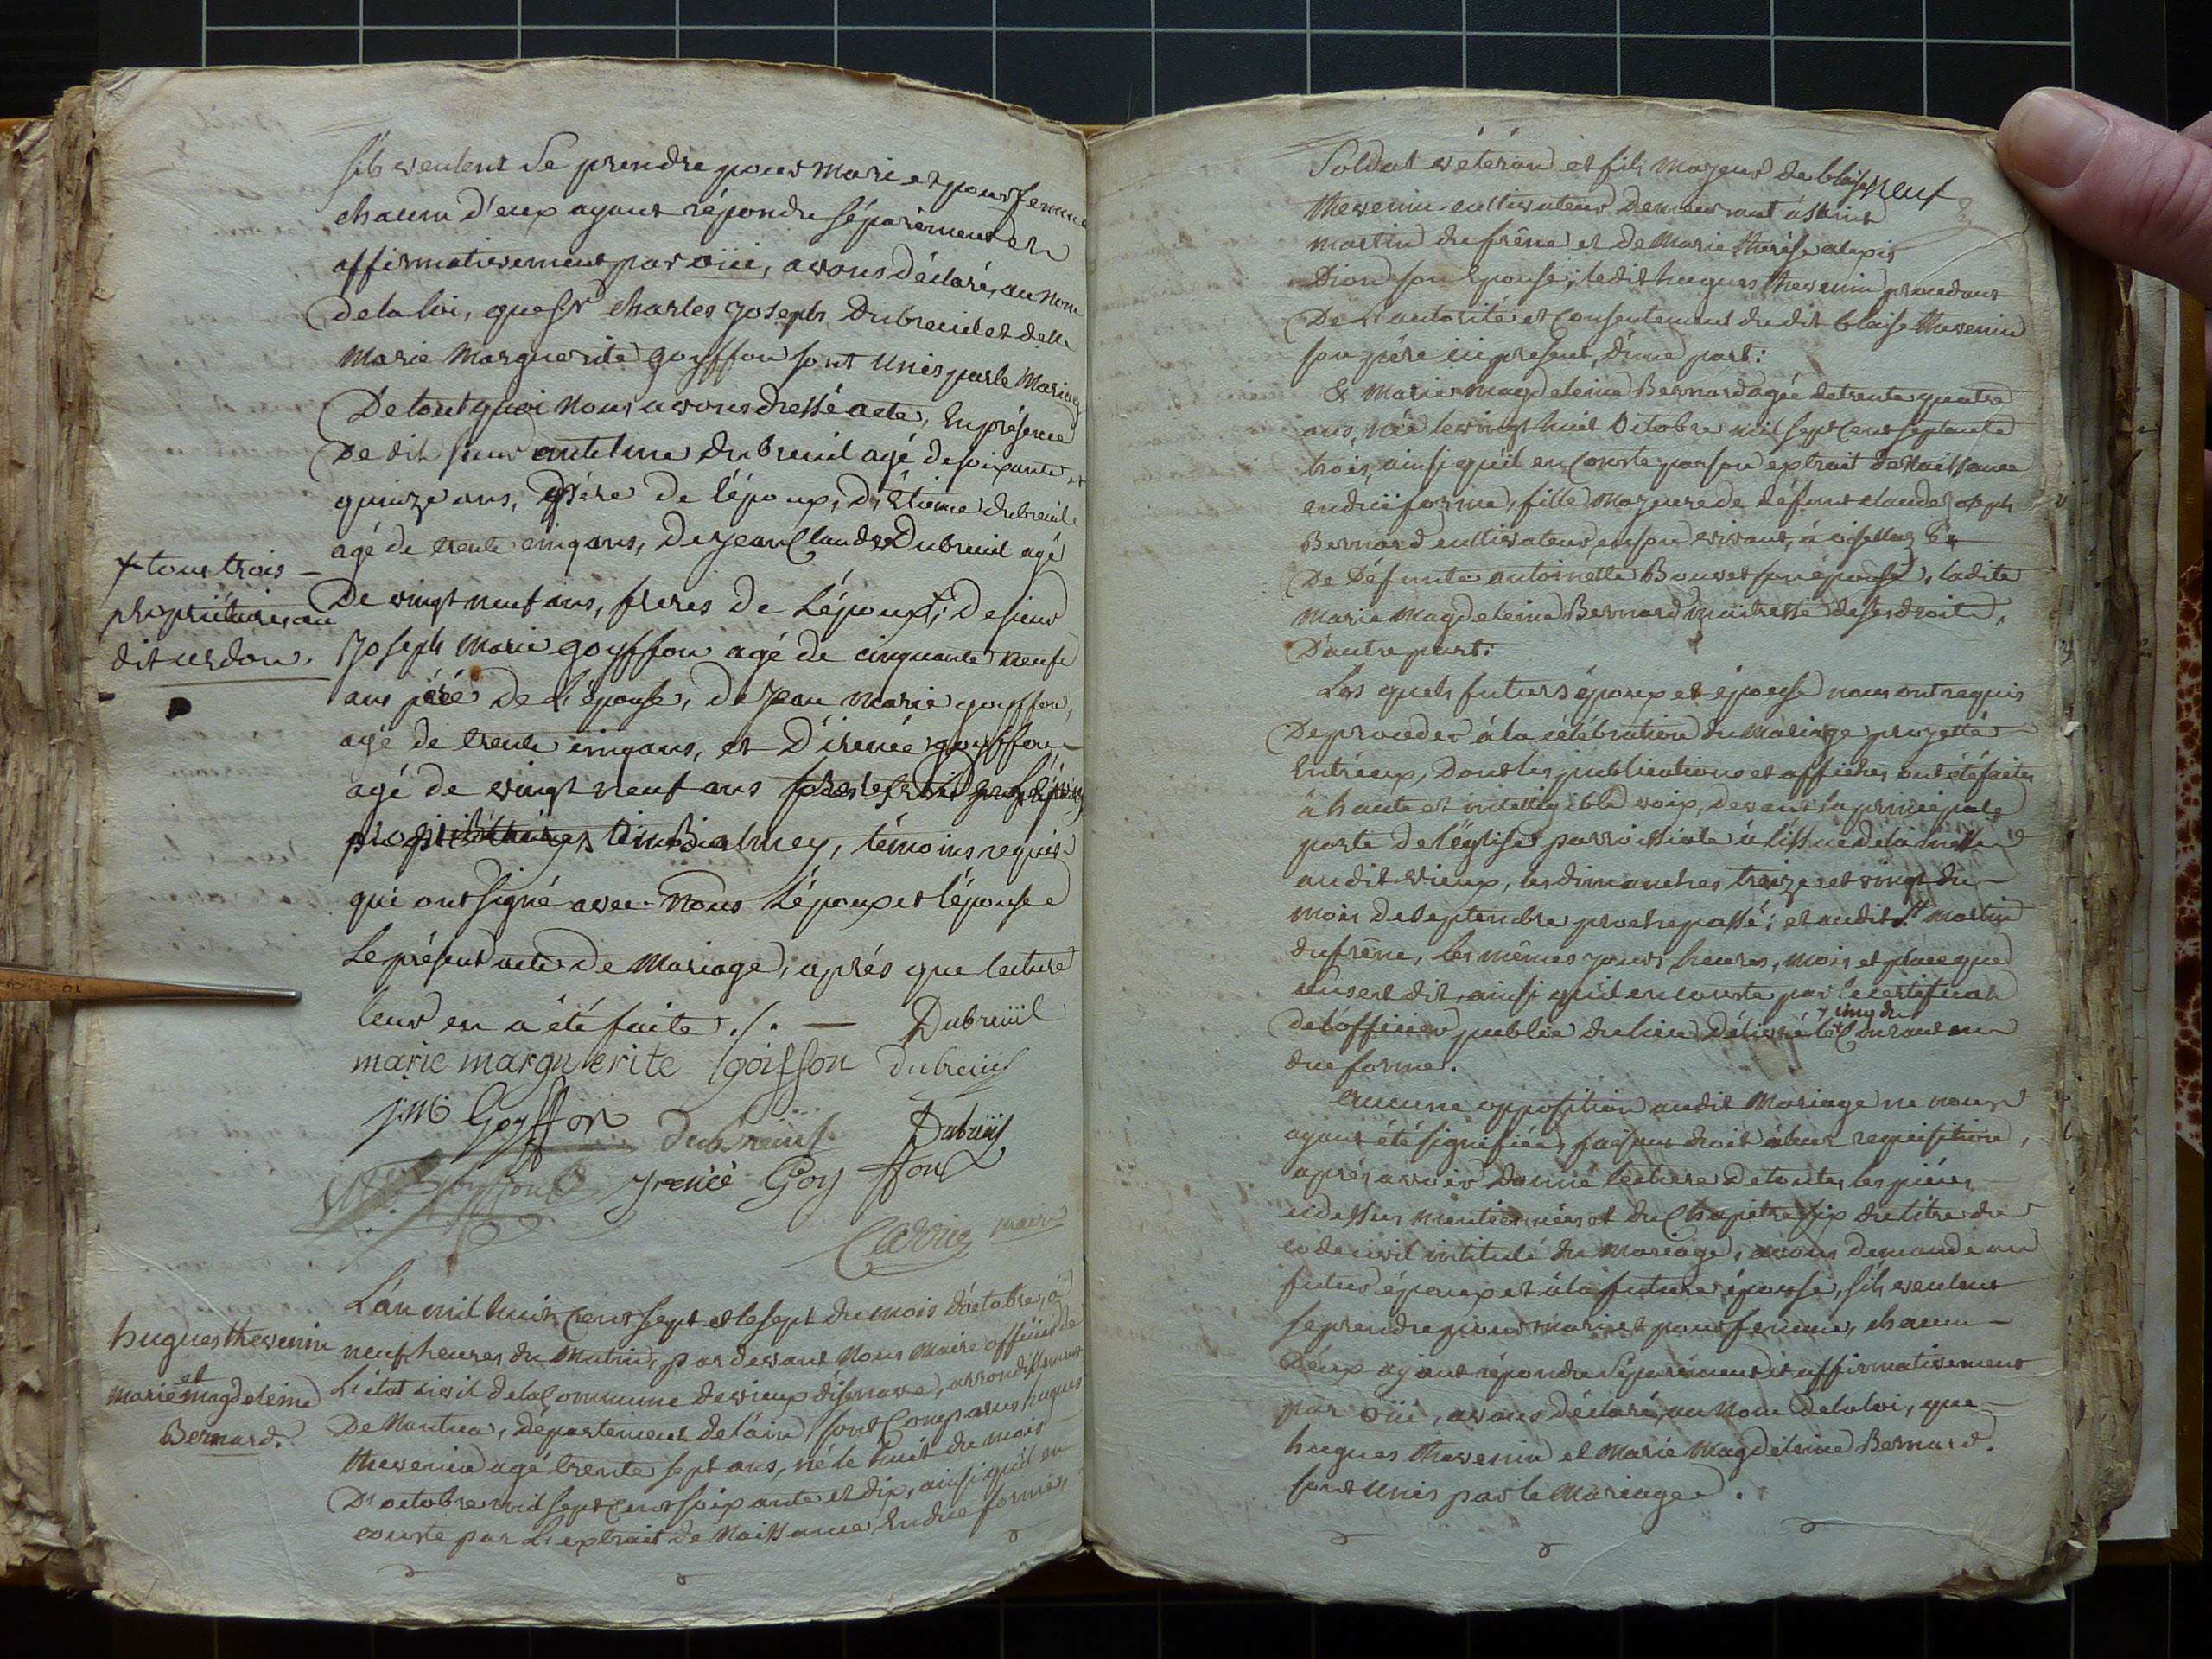 s'ils veulent se prendre pour mari et pour femme
chacun d'eux ayant répondu séparément et
affirmativement par oüi, avons déclaré, au nom
de la loi, que sr charles joseph Dubreuil et delle
Marie Marguerite goyffon sont unis par le mariage
De tout quoi nous avons dressé acte, En présence
De dit sieur antelme dubreuil agé de soixante et
quinze ans, père de l'époux, d'Etienne dubreuil
agé de trente cinq ans, De jean Claude Dubreuil agé
De vingt neuf ans, freres de L'époux +; De sieur
joseph Marie goyffon agé de cinquante neuf
ans père de L'épouse, de jean marie goyffon,
agé de trente cinq ans, et D'irenée goyffon
agé de vingt neuf ans
témoins requis
qui ont signé avec Nous L'époux et l'épouse
Le présent acte de Mariage, après que lecture
leur en a été faite ./. — Dubreüil
marie marguerite goiffon dubreüil
j m Goyffon dubreüil Dubreüil
goyffon jrenée Goyffon
maire
+ tous trois
propriétaires au
dit cerdon.
hugues thevenin
et
marie magdeleine
Bernard.
L'an mil huit cent sept et le sept du mois d'octobre, à
neuf heures du Matin, par devant Nous Maire officier de
L'état civil de la Commune de vieux d'isenave, arrondissement
De Nantua, département de l'ain, sont Comparus hugues
thevenin agé trente sept ans, né le huit du mois
D'octobre mil sept cent soixante et dix, ainsi qu'il en
conste par L'extrait de Naissance En due forme,
Soldat vétéran et fils majeur de blaise
neuf
thevenin cultivateur demeurant à saint
martin du frêne et de Marie therése alexis
Dion son Epouse; ledit hugues thevenin procédant
De L'autorité et Consentement du dit blaise thevenin
son père ici présent, d'une part:
Et Marie Magdeleine Bernard agée de trente quatre
ans, née le vingt huit Octobre mil sept cent septante
trois, ainsi qu'il en Conste par son extrait de Naissance
en düe forme, fille Majeure de défunt claude joseph
Bernard cultivateur, en son vivant, à oisellaz Et
De Défunte antoinette Bouvet son épouse, ladite
Marie Magdeleine Bernard maitresse de ses droits,
D'autre part:
Les quels futurs époux et épouse nous ont requis
De proceder à la célébration du Mariage projetté
Entr'eux, Dont les publications et affiches ont été faites
à haute et intelligible voix, devant la principale
porte de l'église parroissiale à l'issue de la messe
audit vieux, les dimanches treize et vingt du
mois de septembre proche passé; et audit st martin
du frêne, les mêmes jours, heures, mois et place que
dit, ainsi qu'il en conste par le certificat
cinq du
de l'officier public du lieu délivré le Courant en
due forme.
Aucune opposition audit Mariage ne nous
ayant été signifiée, faisant droit à leur requisition,
après avoir Donné lecture de toutes les pièces
cidessus mentionnées et du Chapitre six du titre du
code civil intitulé du Mariage, avons demandé au
futur époux et à la future épouse, s'ils veulent
se prendre pour mari et pour femme, chacun
d'eux ayant répondu séparément et affirmativement
par oüi, avons déclaré, au Nom de la loi, que
hugues thevenin et Marie Magdeleine Bernard.
sont unis par le Mariage.